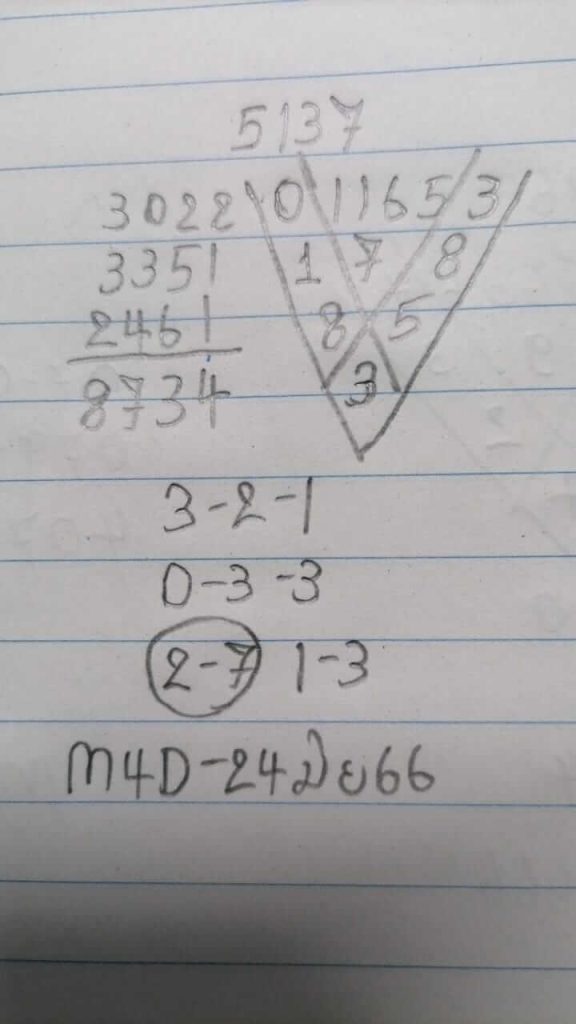 5137
3022 0 1 1 6 5 3
3351 1 7 8
2461 8 5
8734 3
3-2-1
0-3-3
2-7 1-3
M4D-24มิย66